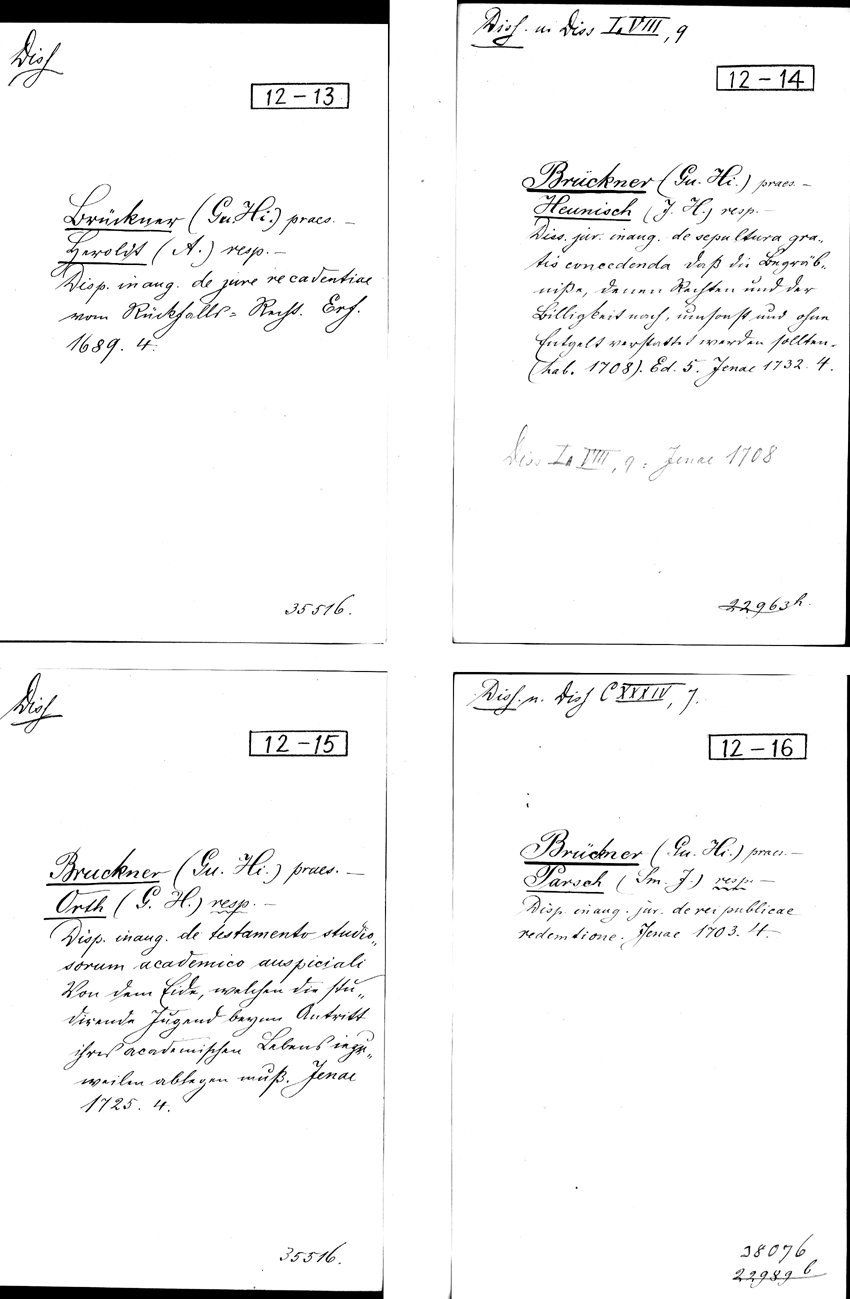 Diss
12-13
Brückner (Gu. Hi.) praes. —
Heroldt (A.) resp. —
Disp. inaug. de jure recadentiae
vom Rückfalls-Recht. Erf.
1689. 4.
35516.
Diss. u. Diss I, VIII, 9
12-14
Brückner (Gu. Hi.) praes. —
Heunisch (J. H.) resp. —
Diss. jur. inaug. de sepultura gra-
tis concedenda daß die Begräb-
niße, denen Rechten und der
Billigkeit nach, umsonst und ohne
Entgelt verstattet werden sollten.
(hab. 1708). Ed. 5. Jenae 1732. 4.
Diss I, VIII, 9: Jenae 1708
22963h.
Diss
12-15
Bruckner (Gu. Hi.) praes. —
Orth (G. H.) resp. —
Disp. inaug. de testamento studio-
sorum academico auspiciali
Von dem Eide, welchen die stu-
dirende Jugend beym Antritt
ihres academischen Lebens
weilen ablegen muß. Jenae
1725. 4.
35516.
Diss. u. Diss CXXXIV, 7.
12-16
Brückner (Gu. Hi.) praes. —
Parsch (Sm. J.) resp. —
Disp. inaug. jur. de rei publicae
redemtione. Jenae 1703. 4. —
38076
22989b